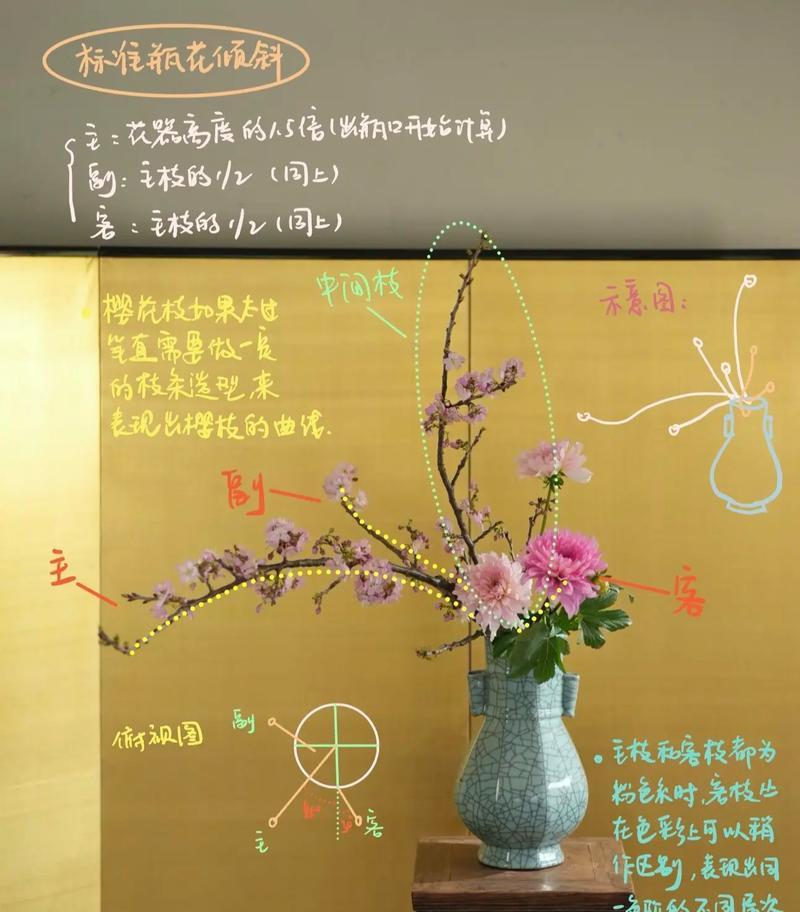 标准瓶花倾斜
主：花器高度的1.5倍（出瓶口开始计算）
副：主枝的1/2（同上）
客：主枝的1/2（同上）
中间枝
示意图：
樱花枝如果太过
笔直需要做一定
的枝条造型，来
表现出樱枝的曲线.
副
主
客
俯视图
副
主
客
45°
主枝和客枝都为
粉色系时，客枝也
在色彩上可以稍
作区别，表现出同
一色系的不同层次